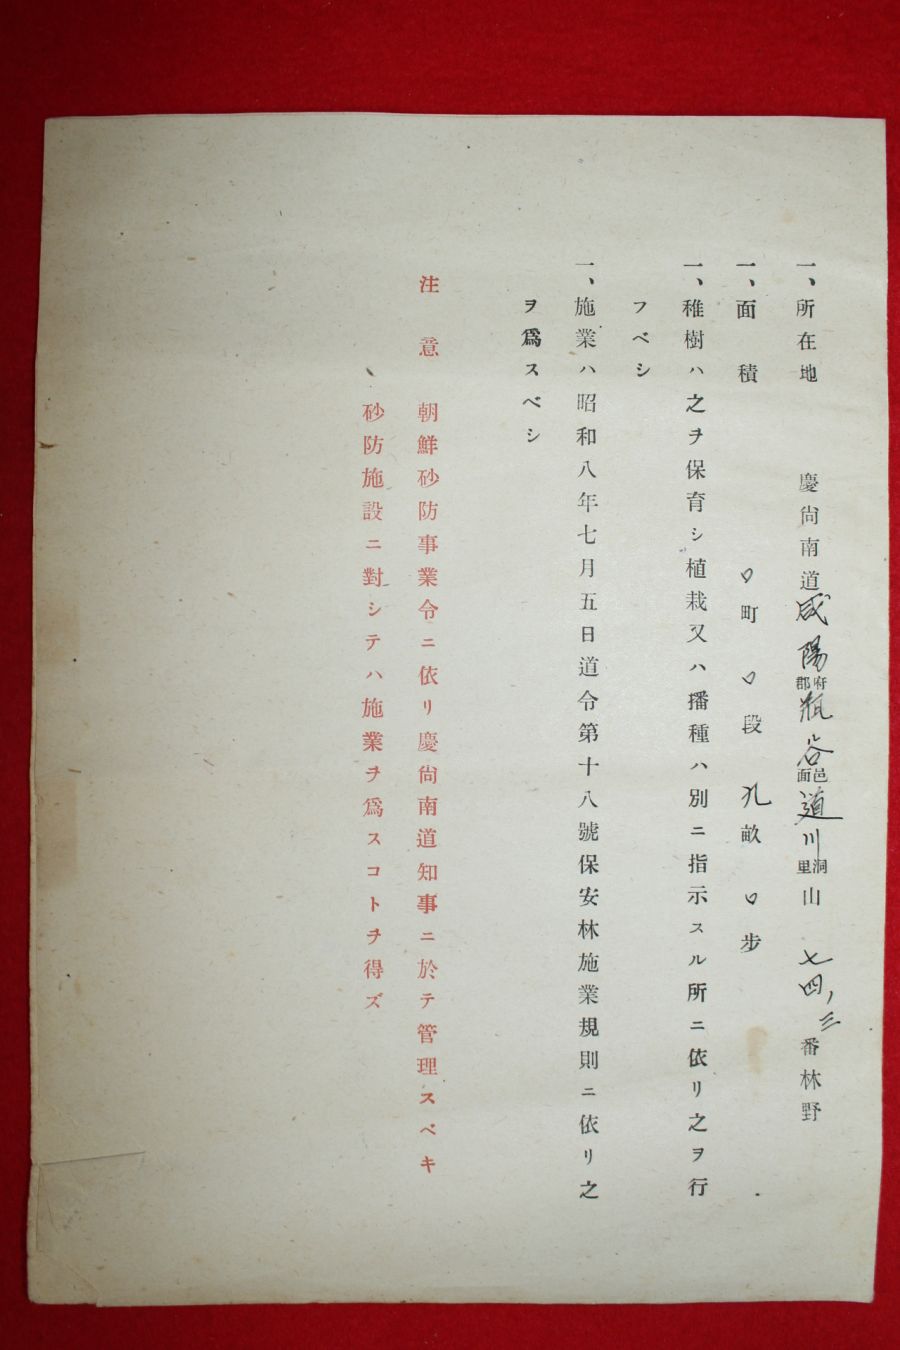 一、所在地 慶尙南道咸陽府郡瓶谷邑面道川洞里山七四ノ三番林野
一、面積 〇町〇段九畝〇步
一、稚樹ハ之ヲ保育シ植栽又ハ播種ハ別ニ指示スル所ニ依リ之ヲ行
フベシ
一、施業ハ昭和八年七月五日道令第十八號保安林施業規則ニ依リ之
ヲ爲スベシ
注意 朝鮮砂防事業令ニ依リ慶尙南道知事ニ於テ管理スベキ
砂防施設ニ對シテハ施業ヲ爲スコトヲ得ズ